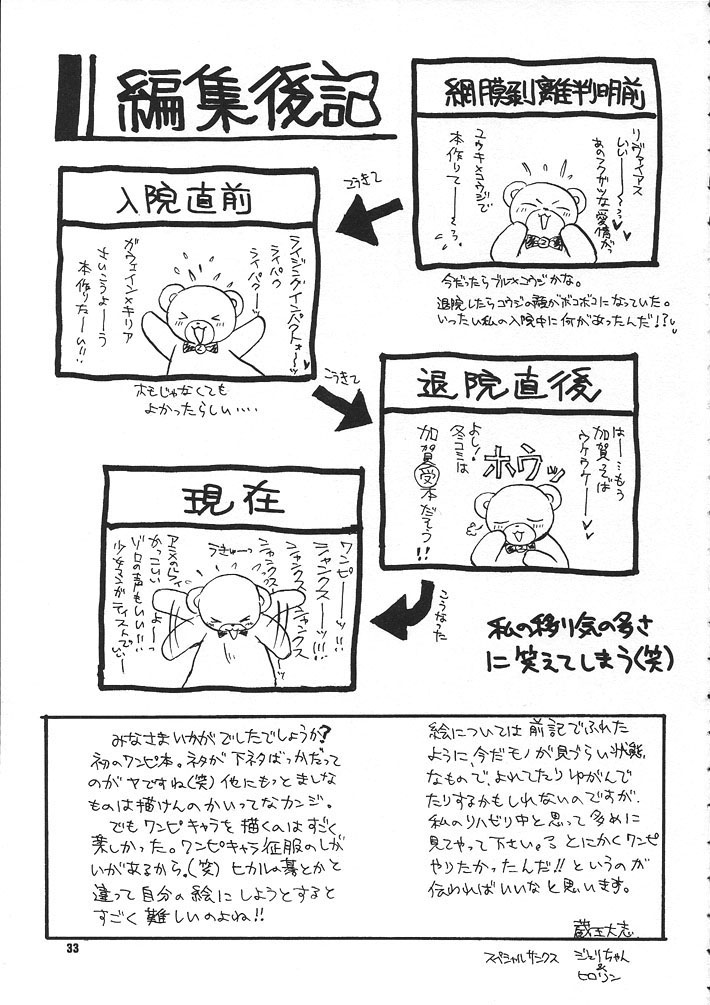 編集後記
網膜剥離判明前
リヴァイアス
いいー～っ
あのフクザツな愛情がっ
ユウキ×コウジで
本作りてー～っ。
今だったらブル×コウジかな。
退院したらコウジの顔がボコボコになっていた。
いったい私の入院中に何があったんだ!?
こうきて
入院直前
ライジングインパクトォーッ
ライパク
ライパクーッ
ガウェイン×キリア
さいこうよーーう
本作りたーい!!
ホモじゃなくても
よかったらしい‥‥
こうきて
退院直後
はー…もう
加賀ってば
ウケウケー
ホウッ
よし!
冬コミは
加賀受本だぞう!!
こうなった
現在
ワンピーーッ!!
シャンクスーッ!!
シャンクスシャンクス
シャンクスーッ
うきゅーっ
アニメのEDも
かっこいいよーっ
ゾロの声もいい!!
少女マンガティストでいいー
私の移り気の多さ
に笑えてしまう(笑)
みなさまいかがでしたでしょうか?
初のワンピ本。ネタが下ネタばっかだって
のがヤですね(笑)他にもっとましな
ものは描けんのかいってなカンジ。
でもワンピキャラを描くのはすごく
楽しかった。ワンピキャラ征服のしが
いがあるから。(笑)ヒカルの碁とかと
違って自分の絵にしようとすると
すごく難しいのよね!!
絵については前記でふれた
ように、今だモノが見づらい状態
なもので、よれてたりゆがんで
たりするかもしれないのですが、
私のリハビリ中と思って多めに
見てやって下さい。る とにかくワンピ
やりたかったんだ!! というのが
伝わればいいなと思います。
蔵王大志
スペシャルサンクス じとりちゃん
&
ヒロリン
33